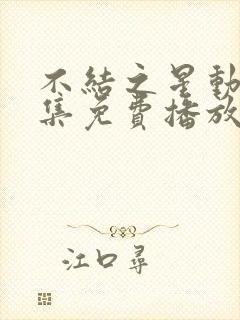 不結之星動
集免費播放
江口尋